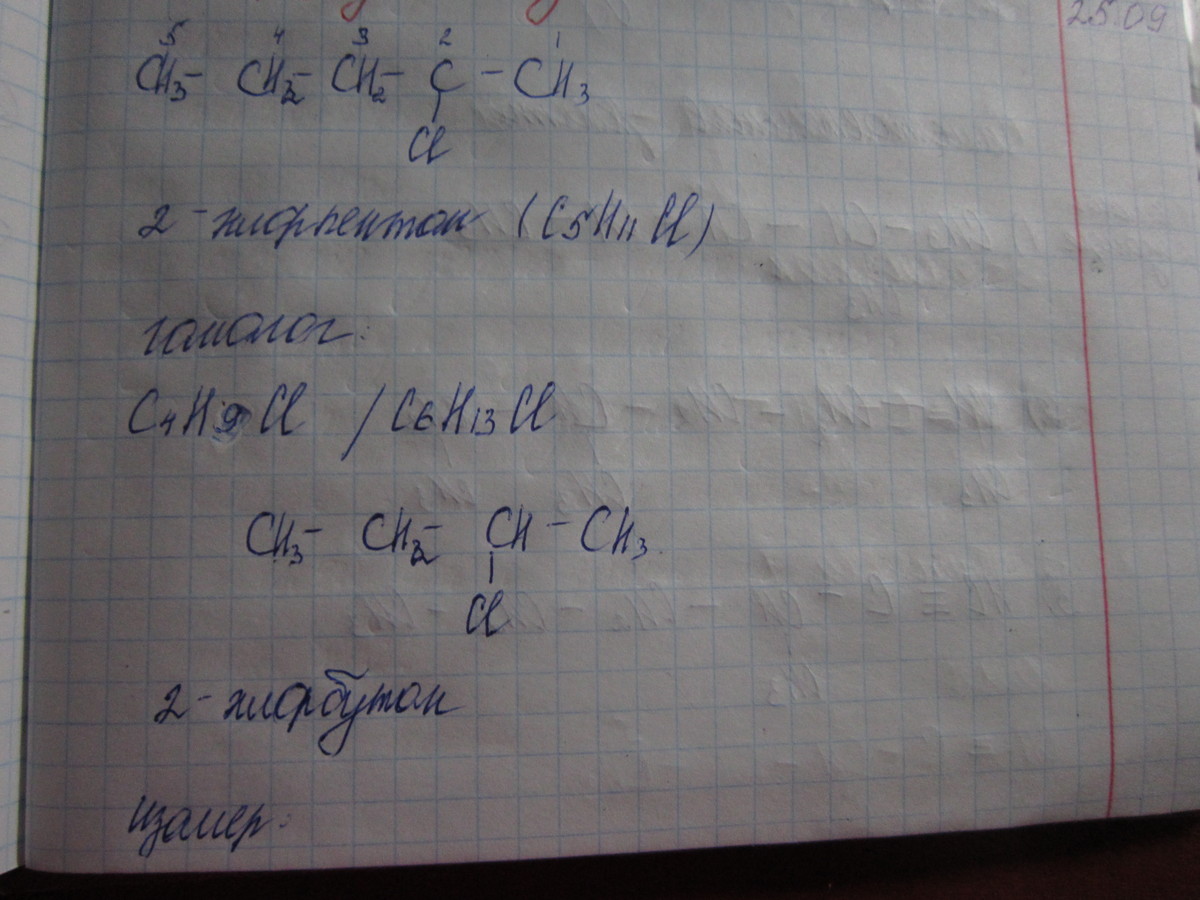 25.09
5 4 3 2 1
CH3- CH2- CH2- C - CH3
Cl
2-хлорпентан (C5H11Cl)
гомолог:
C4H9Cl / C6H13Cl
CH3- CH2- CH - CH3
Cl
2-хлорбутан
изомер: